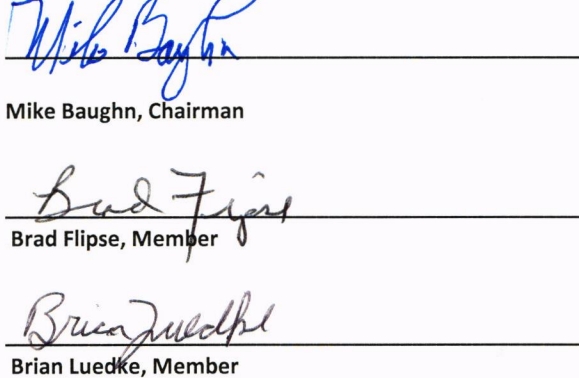 Mike Baughn
Mike Baughn, Chairman
Brad Flipse
Brad Flipse, Member
Brian Luedke
Brian Luedke, Member